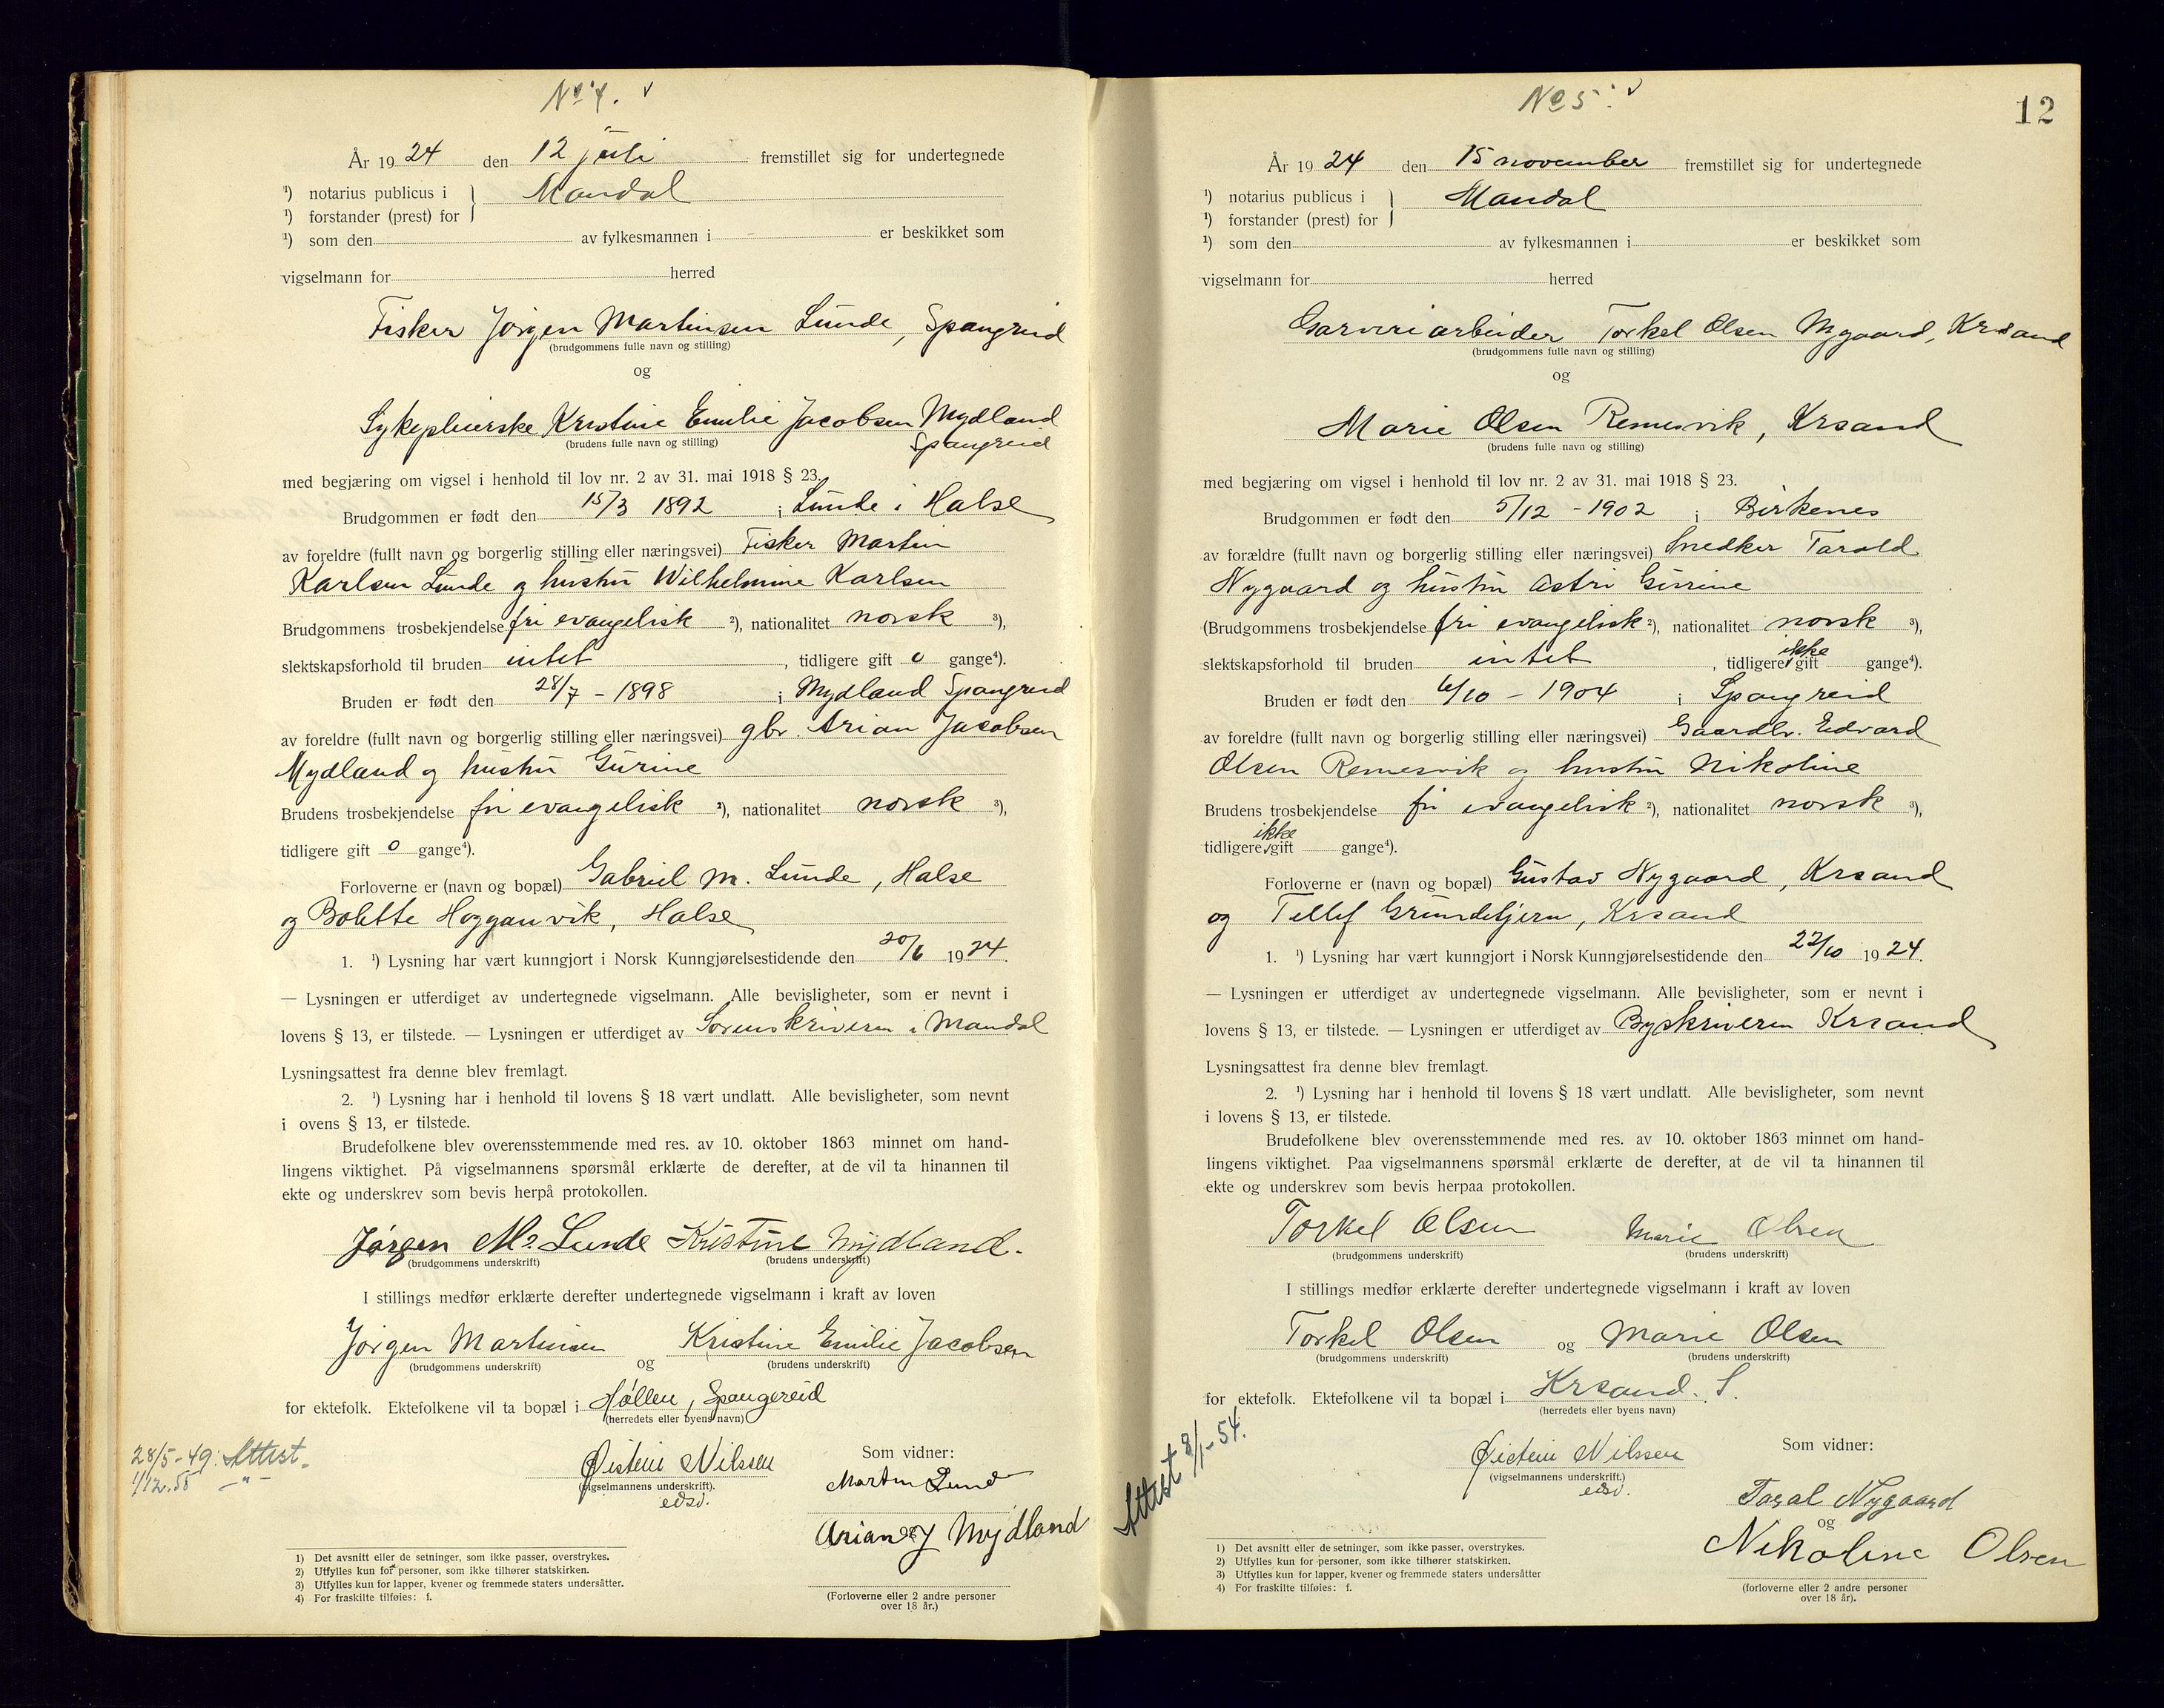 No 4. v
År 1924 den 12 juli fremstillet sig for undertegnede
¹) notarius publicus i } Mandal
¹) forstander (prest) for
¹) som den av fylkesmannen i er beskikket som
vigselmann for herred
Fisker Jørgen Martinsen Lunde, Spangreid
(brudgommens fulle navn og stilling)
og
Sykepleierske Kristine Emilie Jacobsen Mydland
Spangreid
(brudens fulle navn og stilling)
med begjæring om vigsel i henhold til lov nr. 2 av 31. mai 1918 § 23.
Brudgommen er født den 15/3 1892 i Lunde i Halse
av foreldre (fullt navn og borgerlig stilling eller næringsvei) Fisker Martin
Karlsen Lunde og hustru Wilhelmine Karlsen
Brudgommens trosbekjendelse fri evangelisk ²), nationalitet norsk ³),
slektskapsforhold til bruden intet, tidligere gift 0 gange⁴).
Bruden er født den 28/7 - 1898 i Mydland Spangreid
av foreldre (fullt navn og borgerlig stilling eller næringsvei) gbr. Arian Jacobsen
Mydland og hustru Gurine
Brudens trosbekjendelse fri evangelisk ²), nationalitet norsk ³),
tidligere gift 0 gange⁴).
Forloverne er (navn og bopæl) Gabriel M. Lunde, Halse
og Bolette Hogganvik, Halse
1. ¹) Lysning har vært kunngjort i Norsk Kunngjørelsestidende den 20/6 1924.
— Lysningen er utferdiget av undertegnede vigselmann. Alle bevisligheter, som er nevnt i
lovens § 13, er tilstede. — Lysningen er utferdiget av Sorenskriveren i Mandal
Lysningsattest fra denne blev fremlagt.
2. ¹) Lysning har i henhold til lovens § 18 vært undlatt. Alle bevisligheter, som nevnt
i ovens § 13, er tilstede.
Brudefolkene blev overensstemmende med res. av 10. oktober 1863 minnet om hand-
lingens viktighet. På vigselmannens spørsmål erklærte de derefter, at de vil ta hinannen til
ekte og underskrev som bevis herpå protokollen.
Jørgen M. Lunde Kristine Mydland.
(brudgommens underskrift) (brudens underskrift)
I stillings medfør erklærte derefter undertegnede vigselmann i kraft av loven
Jørgen Martinsen og Kristine Emilie Jacobsen
(brudgommens underskrift) (brudens underskrift)
for ektefolk. Ektefolkene vil ta bopæl i Høllen, Spangereid
(herredets eller byens navn)
28/5-49: Attest.
1/12.55 -"-
Øistein Nilssen
(vigselmannens underskrift).
edsv.
Som vidner:
Martin Lund
og
Arian J Mydland
(Forloverne eller 2 andre personer
over 18 år.)
1) Det avsnitt eller de setninger, som ikke passer, overstrykes.
2) Utfylles kun for personer, som ikke tilhører statskirken.
3) Utfylles kun for lapper, kvener og fremmede staters undersåtter.
4) For fraskilte tilføies: f.
No 5. v
12
År 1924 den 15 november fremstillet sig for undertegnede
¹) notarius publicus i } Mandal
¹) forstander (prest) for
¹) som den av fylkesmannen i er beskikket som
vigselmann for herred
Garveriarbeider Torkel Olsen Nygaard, Krsand
(brudgommens fulle navn og stilling)
og
Marie Olsen Remesvik, Krsand
(brudens fulle navn og stilling)
med begjæring om vigsel i henhold til lov nr. 2 av 31. mai 1918 § 23.
Brudgommen er født den 5/12 - 1902 i Birkenes
av forældre (fullt navn og borgerlig stilling eller næringsvei) Snedker Tarald
Nygaard og hustru Astri Gurine
(Brudgommens trosbekjendelse fri evangelisk ²), nationalitet norsk ³),
slektskapsforhold til bruden intet, tidligere ikke gift gange⁴).
Bruden er født den 6/10 - 1904 i Spangreid
av foreldre (fullt navn og borgerlig stilling eller næringsvei) Gaardbr. Edvard
Olsen Remesvik og hustru Nikoline
Brudens trosbekjendelse fri evangelisk ²), nationalitet norsk ³),
tidligere ikke gift gange⁴).
Forloverne er (navn og bopæl) Gustav Nygaard, Krsand
og Tellef Grundetjern, Krsand
1. ¹) Lysning har vært kunngjort i Norsk Kunngjørelsestidende den 22/10 1924.
— Lysningen er utferdiget av undertegnede vigselmann. Alle bevisligheter, som er nevnt i
lovens § 13, er tilstede. — Lysningen er utferdiget av Byskriveren Krsand
Lysningsattest fra denne blev fremlagt.
2. ¹) Lysning har i henhold til lovens § 18 vært undlatt. Alle bevisligheter, som nevnt
i lovens § 13, er tilstede.
Brudefolkene blev overensstemmende med res. av 10. oktober 1863 minnet om hand-
lingens viktighet. Paa vigselmannens spørsmål erklærte de derefter, at de vil ta hinannen til
ekte og underskrev som bevis herpaa protokollen.
Torkel Olsen Marie Olsen
(brudgommens underskrift) (brudens underskrift)
I stillings medfør erklærte derefter undertegnede vigselmann i kraft av loven
Torkel Olsen og Marie Olsen
(brudgommens underskrift) (brudens underskrift)
for ektefolk. Ektefolkene vil ta bopæl i Krsand. S.
(herredets eller byens navn)
Attest 8/1-54.
Øistein Nilssen
(vigselmannens underskrift.)
edsv.
Som vidner:
Taral Nygaard
og
Nikoline Olsen
(forloverne eller 2 andre personer
over 18 år).
1) Det avsnitt eller de setninger, som ikke passer, overstrykes.
2) Utfylles kun for personer, som ikke tilhører statskirken.
3) Utfylles kun for lapper, kvener og fremmede staters undersåtter
4) For fraskilte tilføies: f.